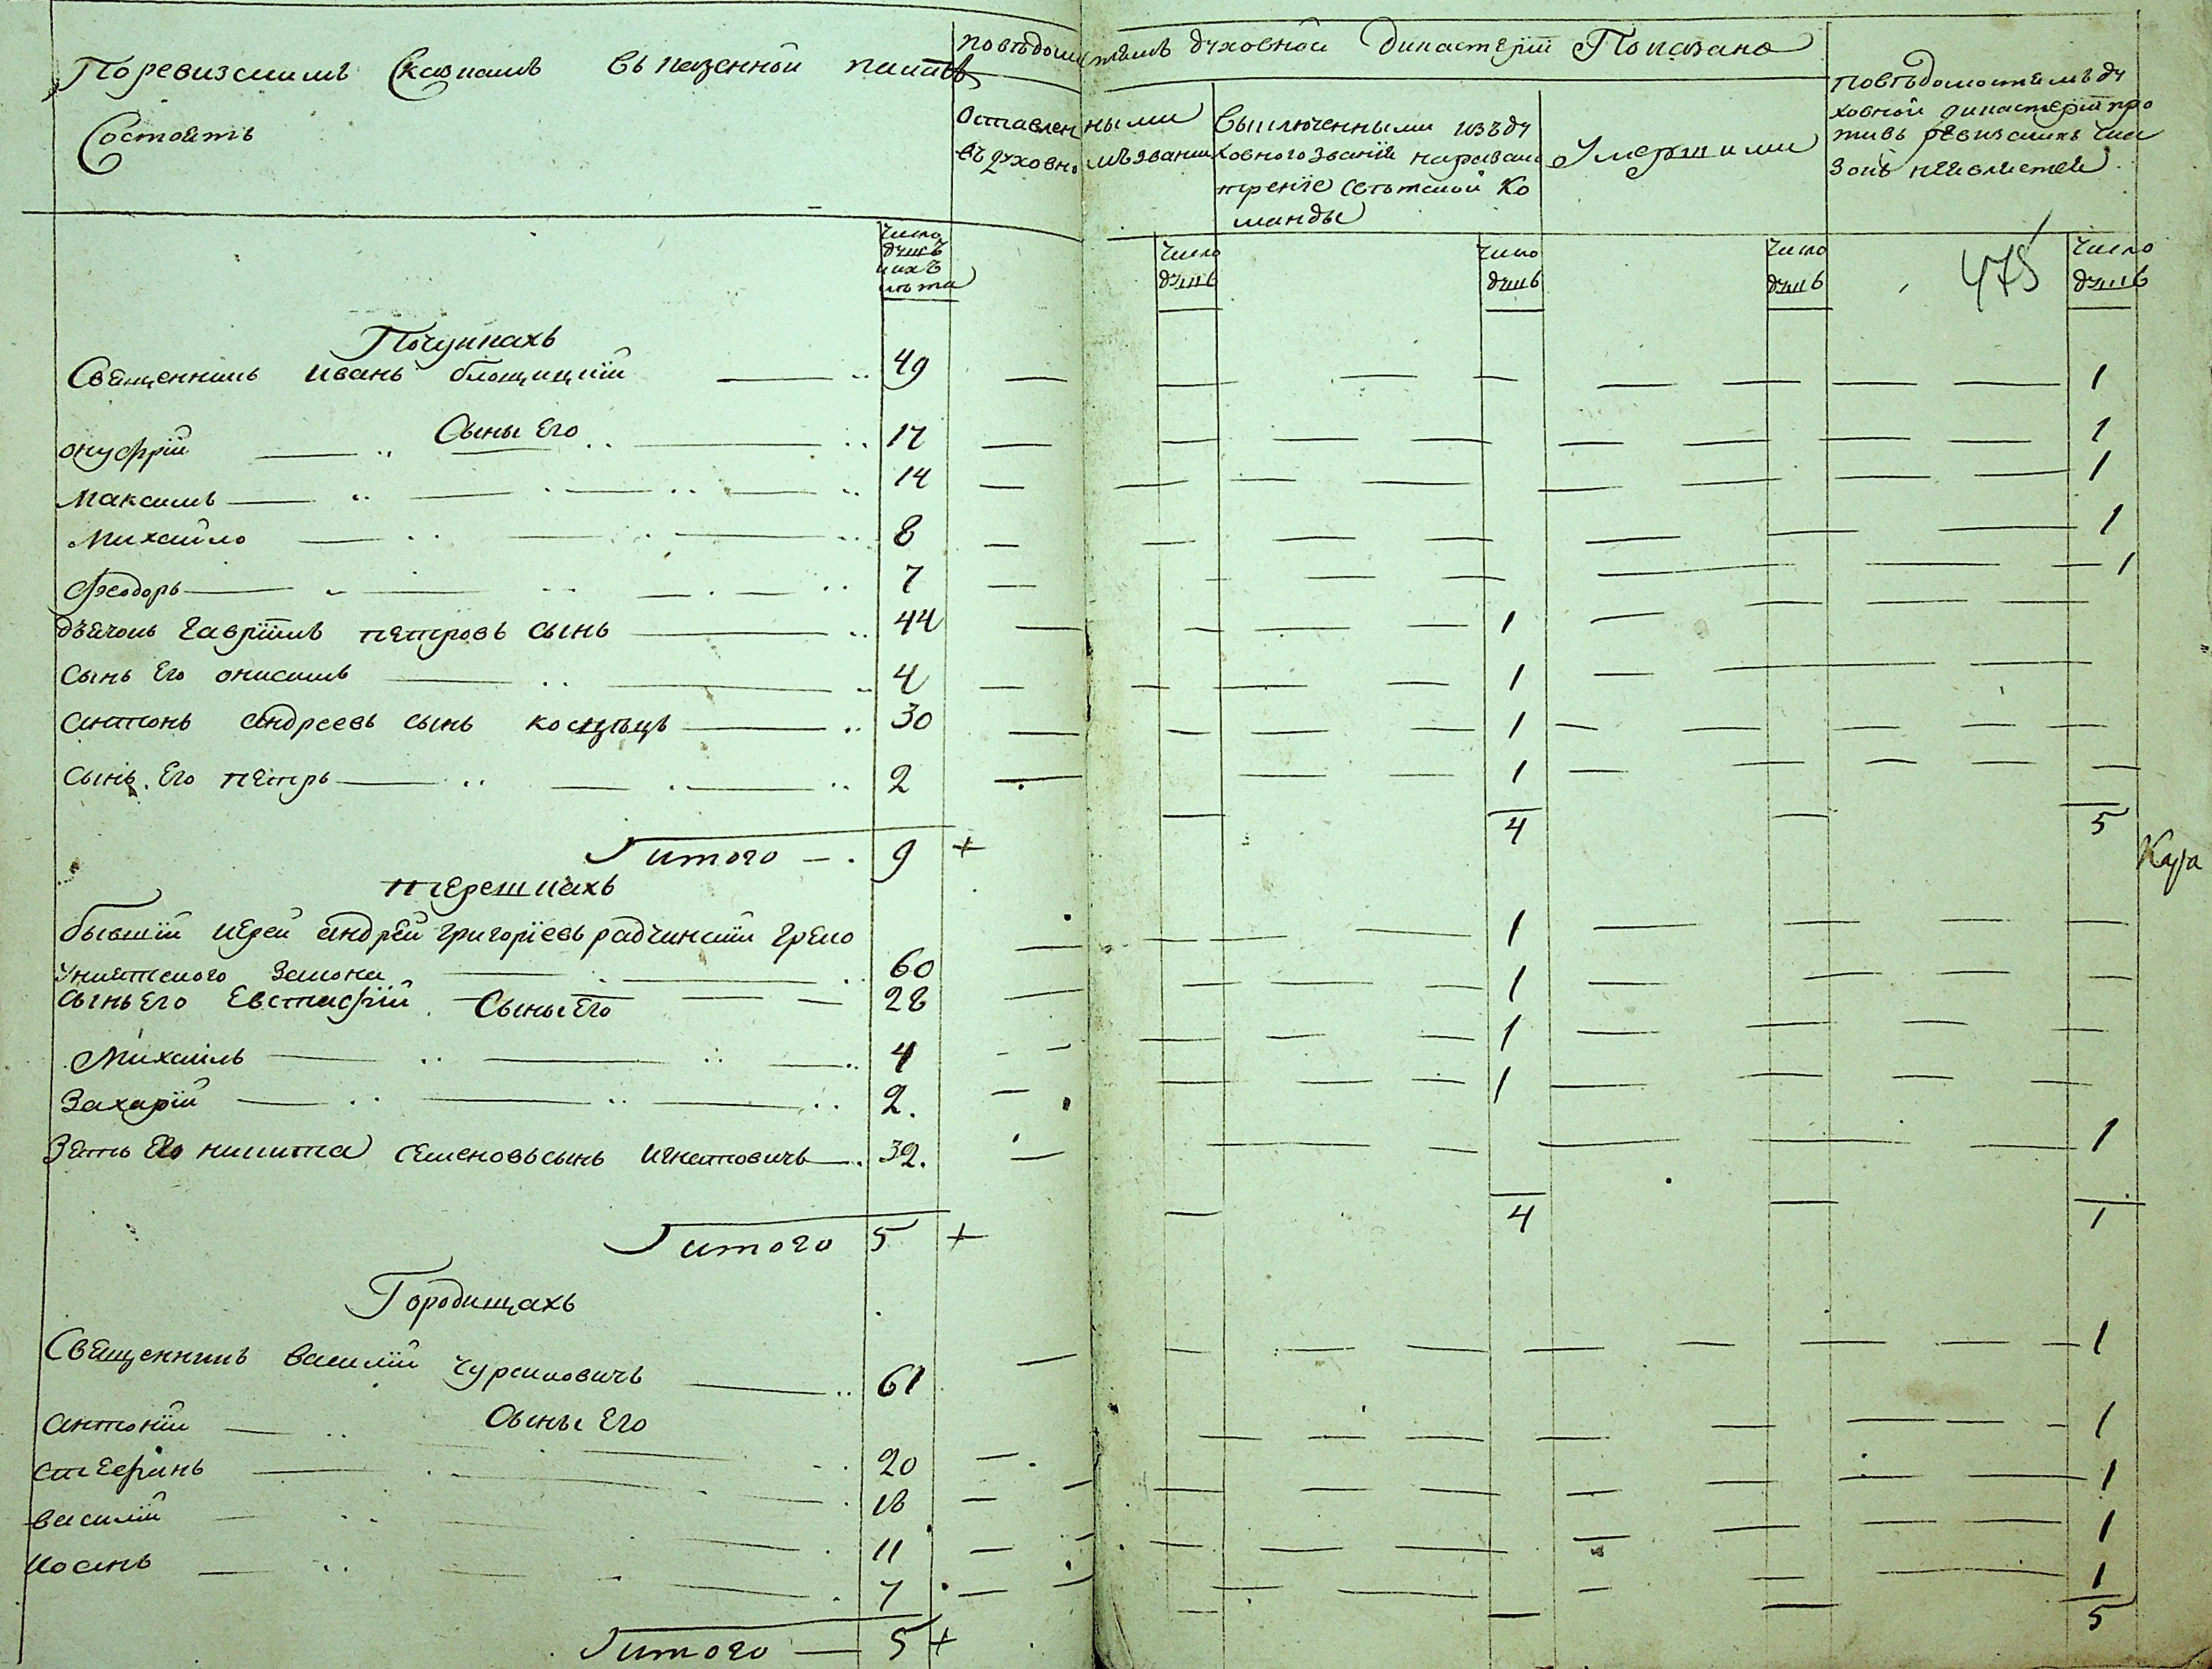 Поревизскимъ Сказкамъ въ казенной палатѣ
Состоитъ
Повѣдомостямъ духовной дикастерїи Показано
Оставленными
въ духовномъ званїи
Выключенными изъ ду
ховного званїя на разсмо
трение Свѣтской Ко
манды
Умершими
Повѣдомостямъ ду
ховной дикастерїи про
тивъ ревизскихъ ска
зокъ неявляетса
Число
душъ
ихъ
лѣта
Число
душъ
Число
душъ
Число
душъ
475
Число
душъ
Почупкахъ
Священникъ Иванъ блощицкїй 49 1
Сыны Его
онуфрїй 17 1
Максимъ 14 1
Михайло 8 1
Феодоръ 7 1
дьячокъ Гаврїилъ петровъ Сынъ 44 1
Сынъ Его онисимъ 4 1
антонъ андреевъ сынъ косцѣцъ 30 1
Сынъ Его петръ 2 1
итого 9 + 4 5
Кара
терешкахъ
бывшїй иерей андрей григорїевъ радчинскїй греко
униятского Закона 60 1
Сынъ Его Евстафїй 28 1
Сыны Его
Михаилъ 4 1
Захарїй 2. 1
Зять Его никита семеновъ сынъ игнатовичъ 32. 1
итого 5 + 4 1
Городищахъ
Священникъ василїй Чурсиновичъ 61 1
Сыны Его
антонїй 20 1
стефанъ 18 1
василїй 11 1
Иоанъ 7 1
итого 5 + 5